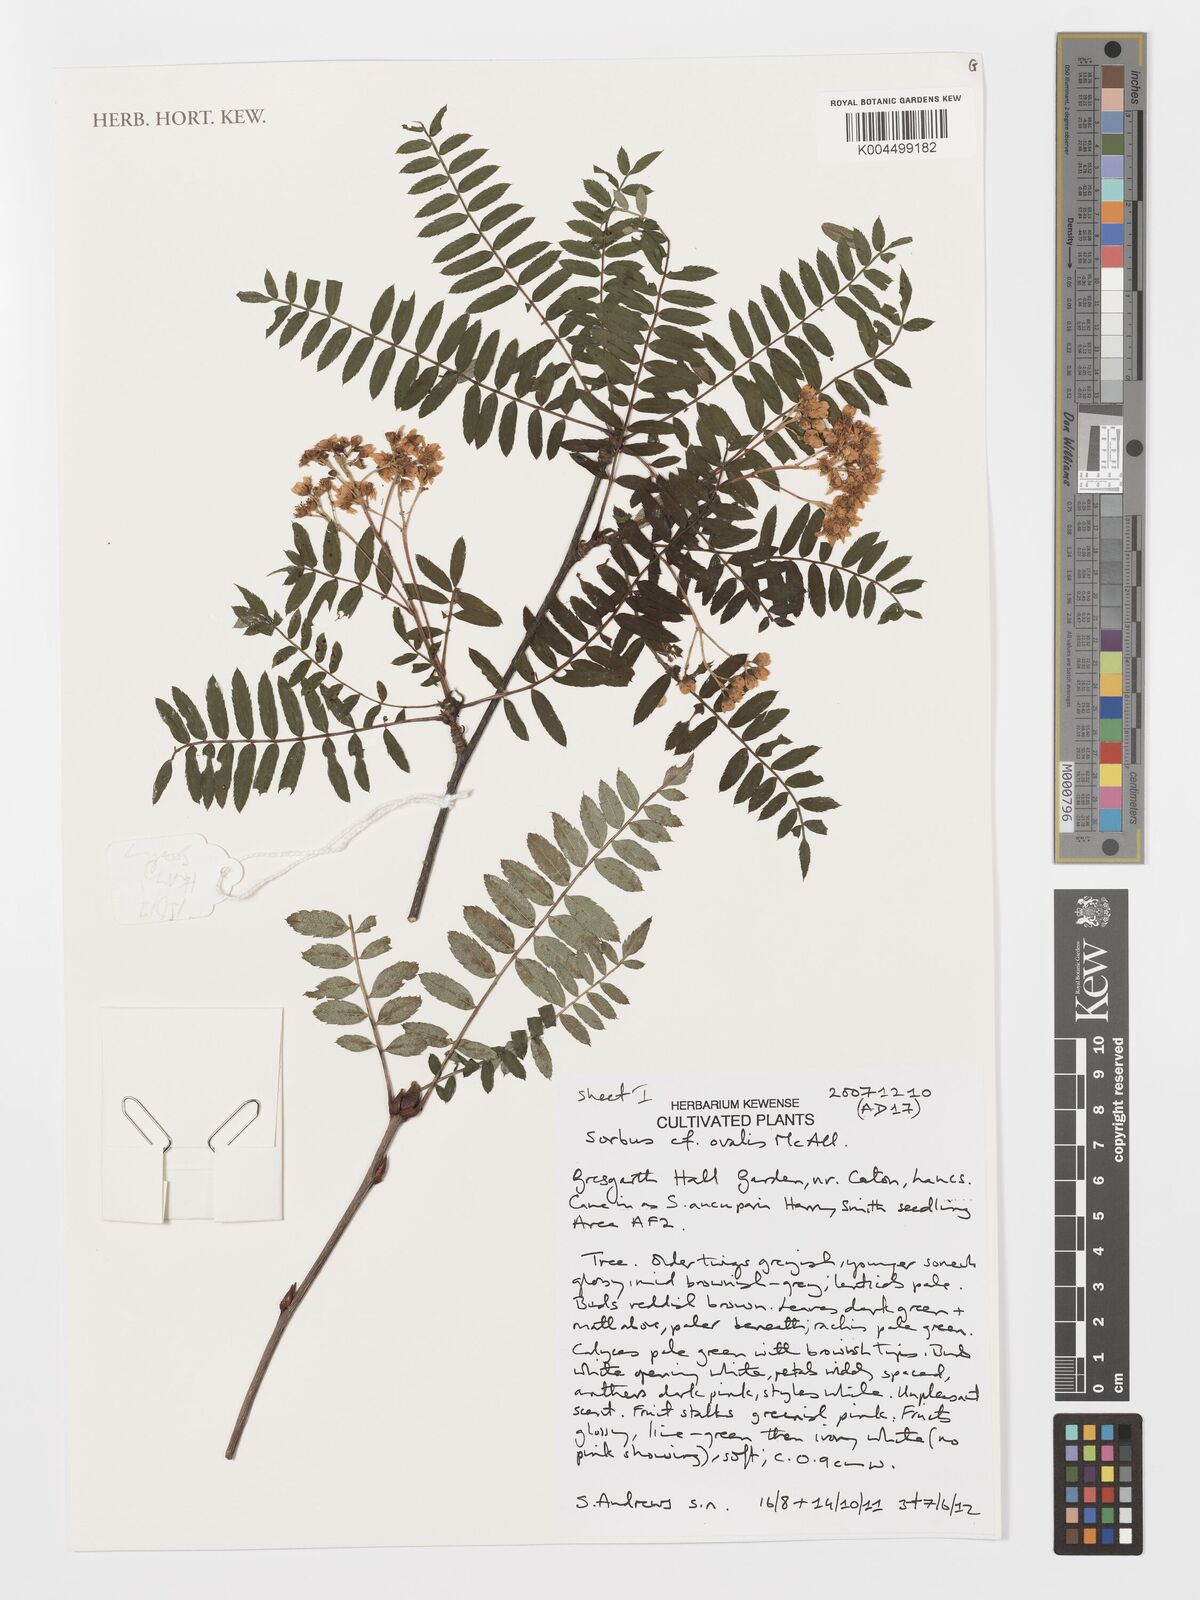 G
HERB. HORT. KEW.
ROYAL BOTANIC GARDENS KEW
K004499182
sheet I
20071210
HERBARIUM KEWENSE
(AD17)
CULTIVATED PLANTS
Sorbus cf. ovalis McAll.
Gresgarth Hall Garden, nr. Caton, Lancs.
Came in as S. aucuparia Harry Smith seedling
Area AF2.
Tree. Older twigs greyish, younger somewh
glossy, mid brownish-grey; lenticels pale.
Buds reddish brown. Leaves dark green +
matt above, paler beneath; rachis pale green.
Calyces pale green with brownish tips. Buds
white opening white, petals widely spaced,
anthers dark pink, styles white. Unpleasant
scent. Fruit stalks greenish pink. Fruits
glossy, lime-green then ivory white (no
pink showing), soft; c. 0.9cm w.
S. Andrews s.n. 16/8 + 14/10/11 3+7/6/12
inches
centimeters
Density
Don Williams
M000796
Royal Botanic Gardens
Kew
0 1 2 3 4 5 6 7 8 9 10
cm
copyright reserved